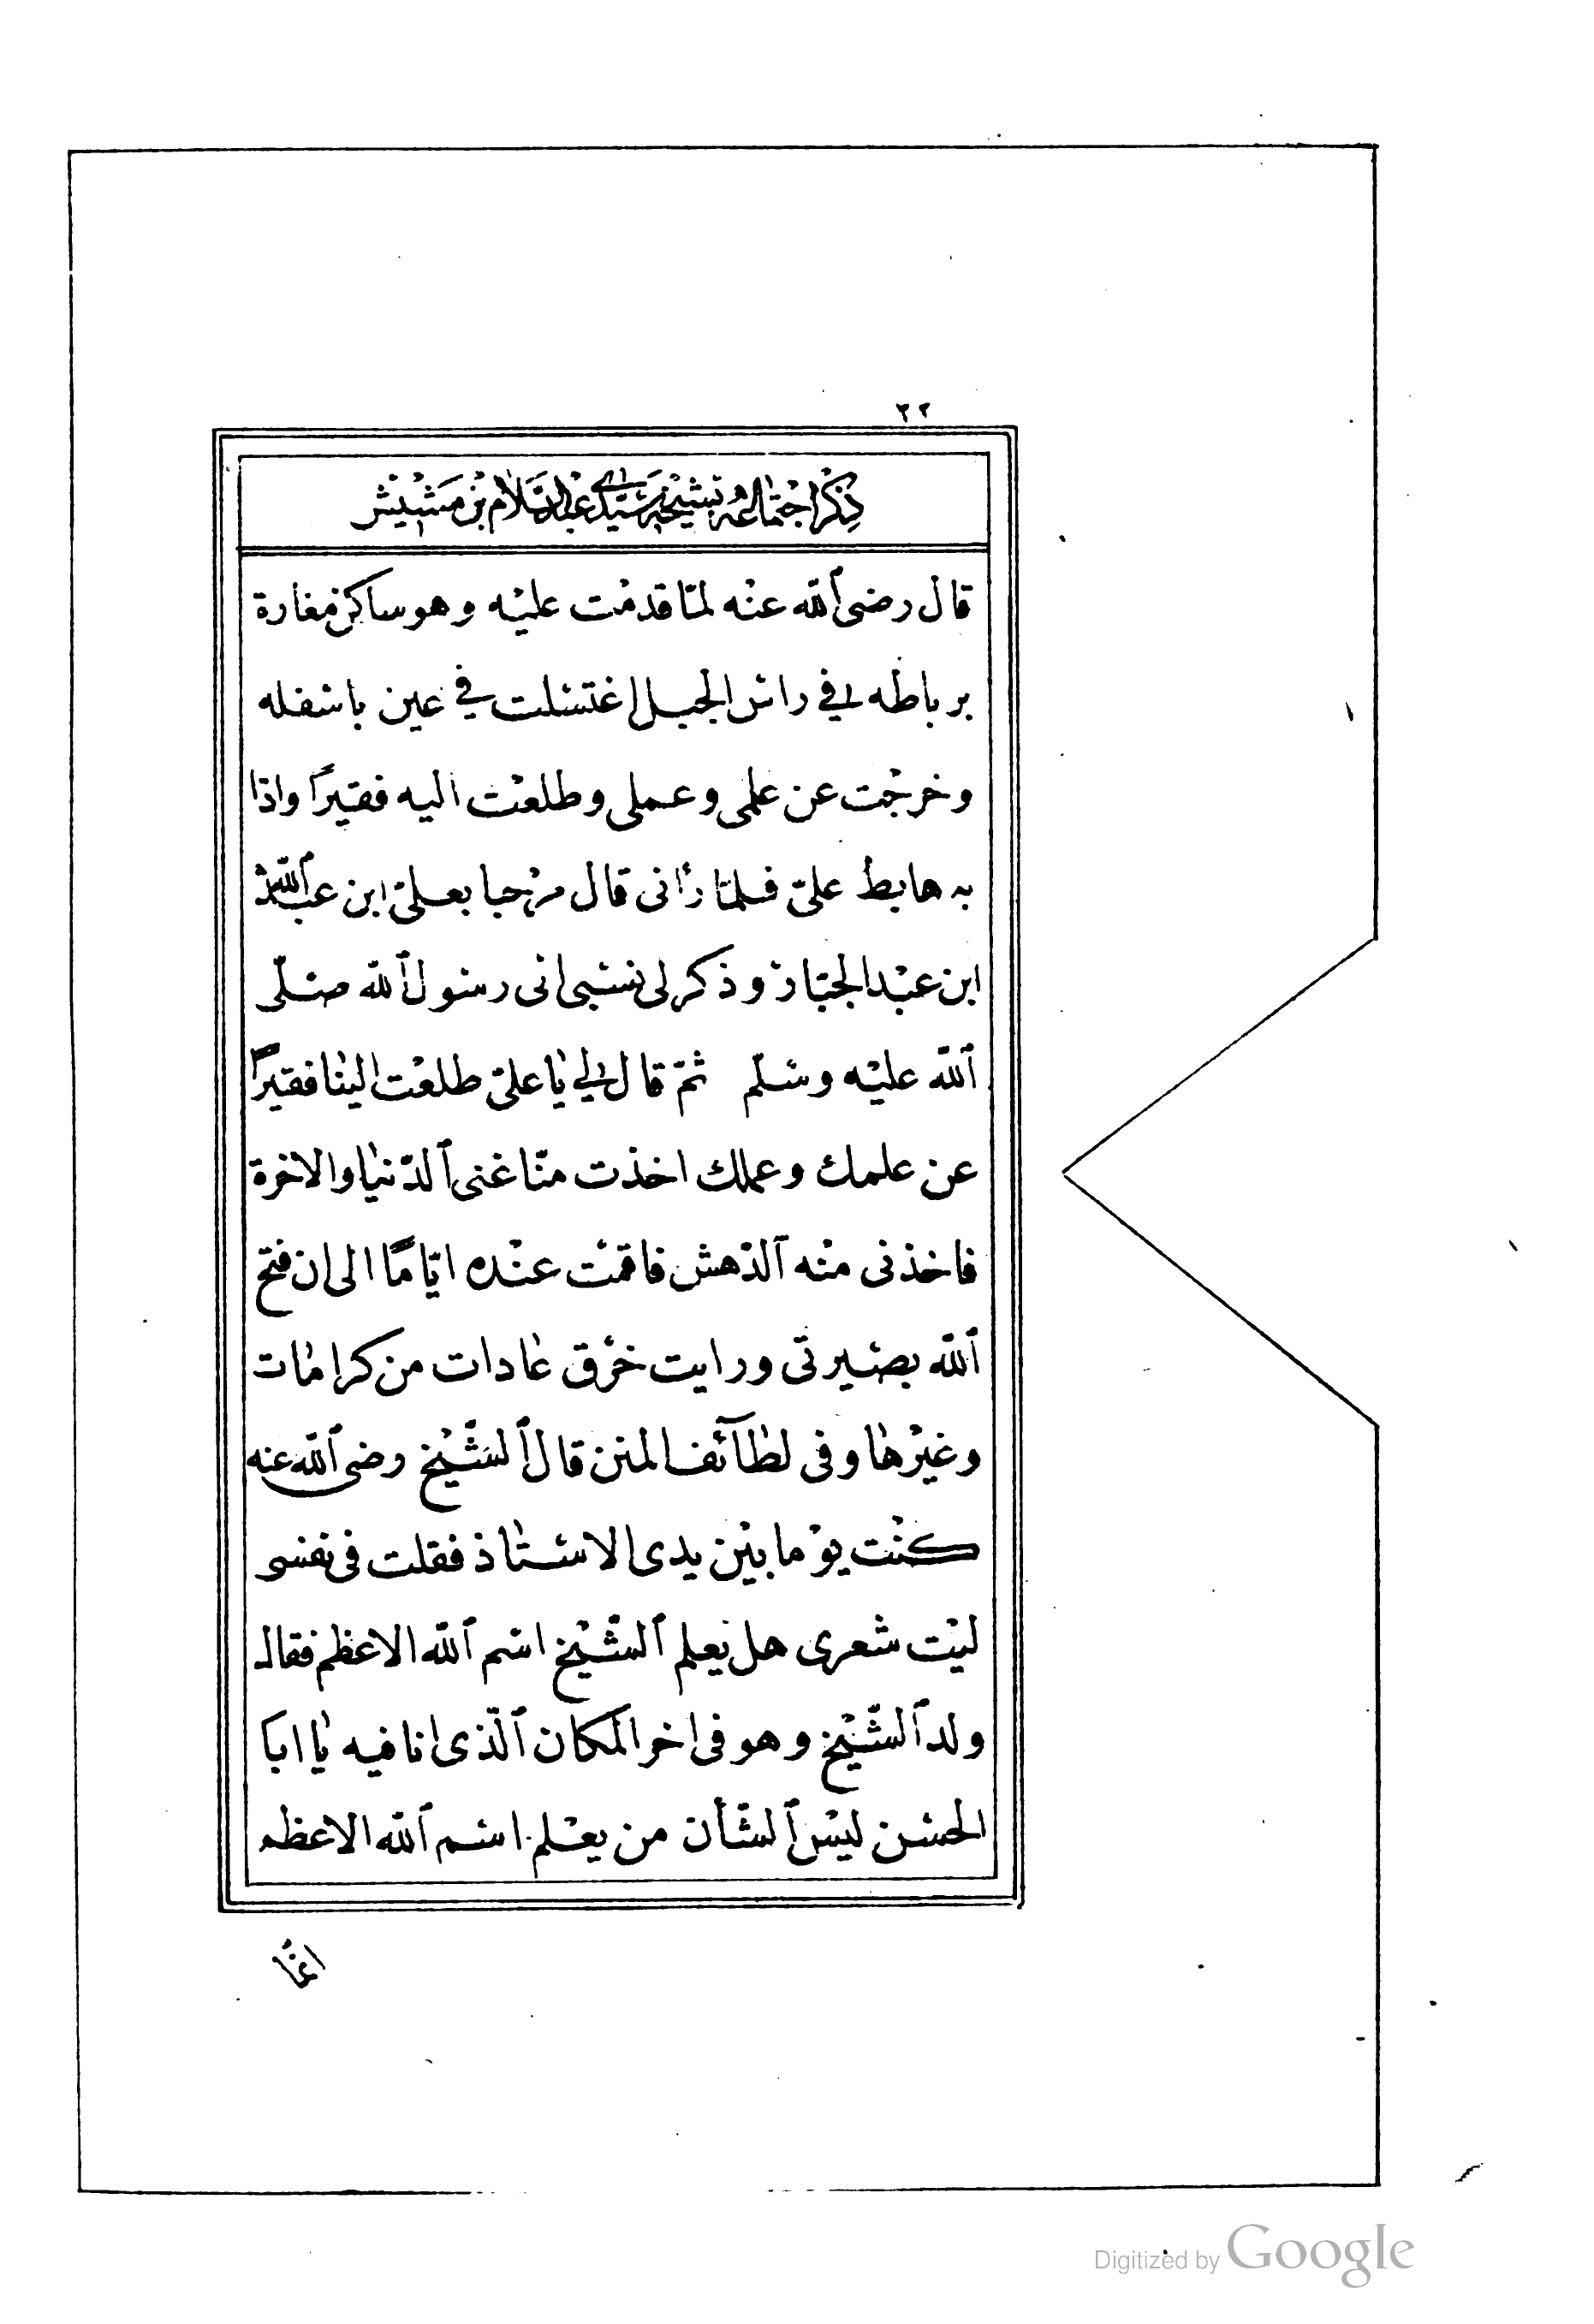 ٢٢
ذكر اجتماعه بشيخه سيدي عبد السلام بن مشيش
قال رضى ٱلله عنه لمّا قدمت عليه وهو ساكن مغارة
برباطه في راس الجبل اغتسلت في عين باسفله
وخرجت عن علمى وعملى وطلعت اليه فقيرًا واذا
به هابط علىّ فلمّا رأنى قال مرحبا بعلىّ ابن عبد ٱلله
ابن عبد الجبّار وذكر لى نسبى الى رسول ٱللّه صلّى
ٱللّه عليه وسلّم ثمّ قال لي يا علىّ طلعت الينا فقيرًا
عن علمك وعملك اخذت منّا غنى ٱلدّنيا والاخرة
فاخذنى منه ٱلدّهش فاقمت عنده ايّامًا الى ان فتح
ٱللّه بصيرتى ورايت خرق عادات من كرامات
وغيرها وفى لطآئف المنن قال ٱلشّيخ رضى ٱللّه عنه
كنت يوما بين يدى الاستاذ فقلت فى نفسى
ليت شعرى هل يعلم ٱلشّيخ اسم ٱللّه الاعظم فقال
ولد ٱلشّيخ وهو فى اخر المكان ٱلّذى انا فيه يا ابا
الحسن ليس ٱلشّأن من يعلم اسم ٱللّه الاعظم
انّما
Digitized by Google